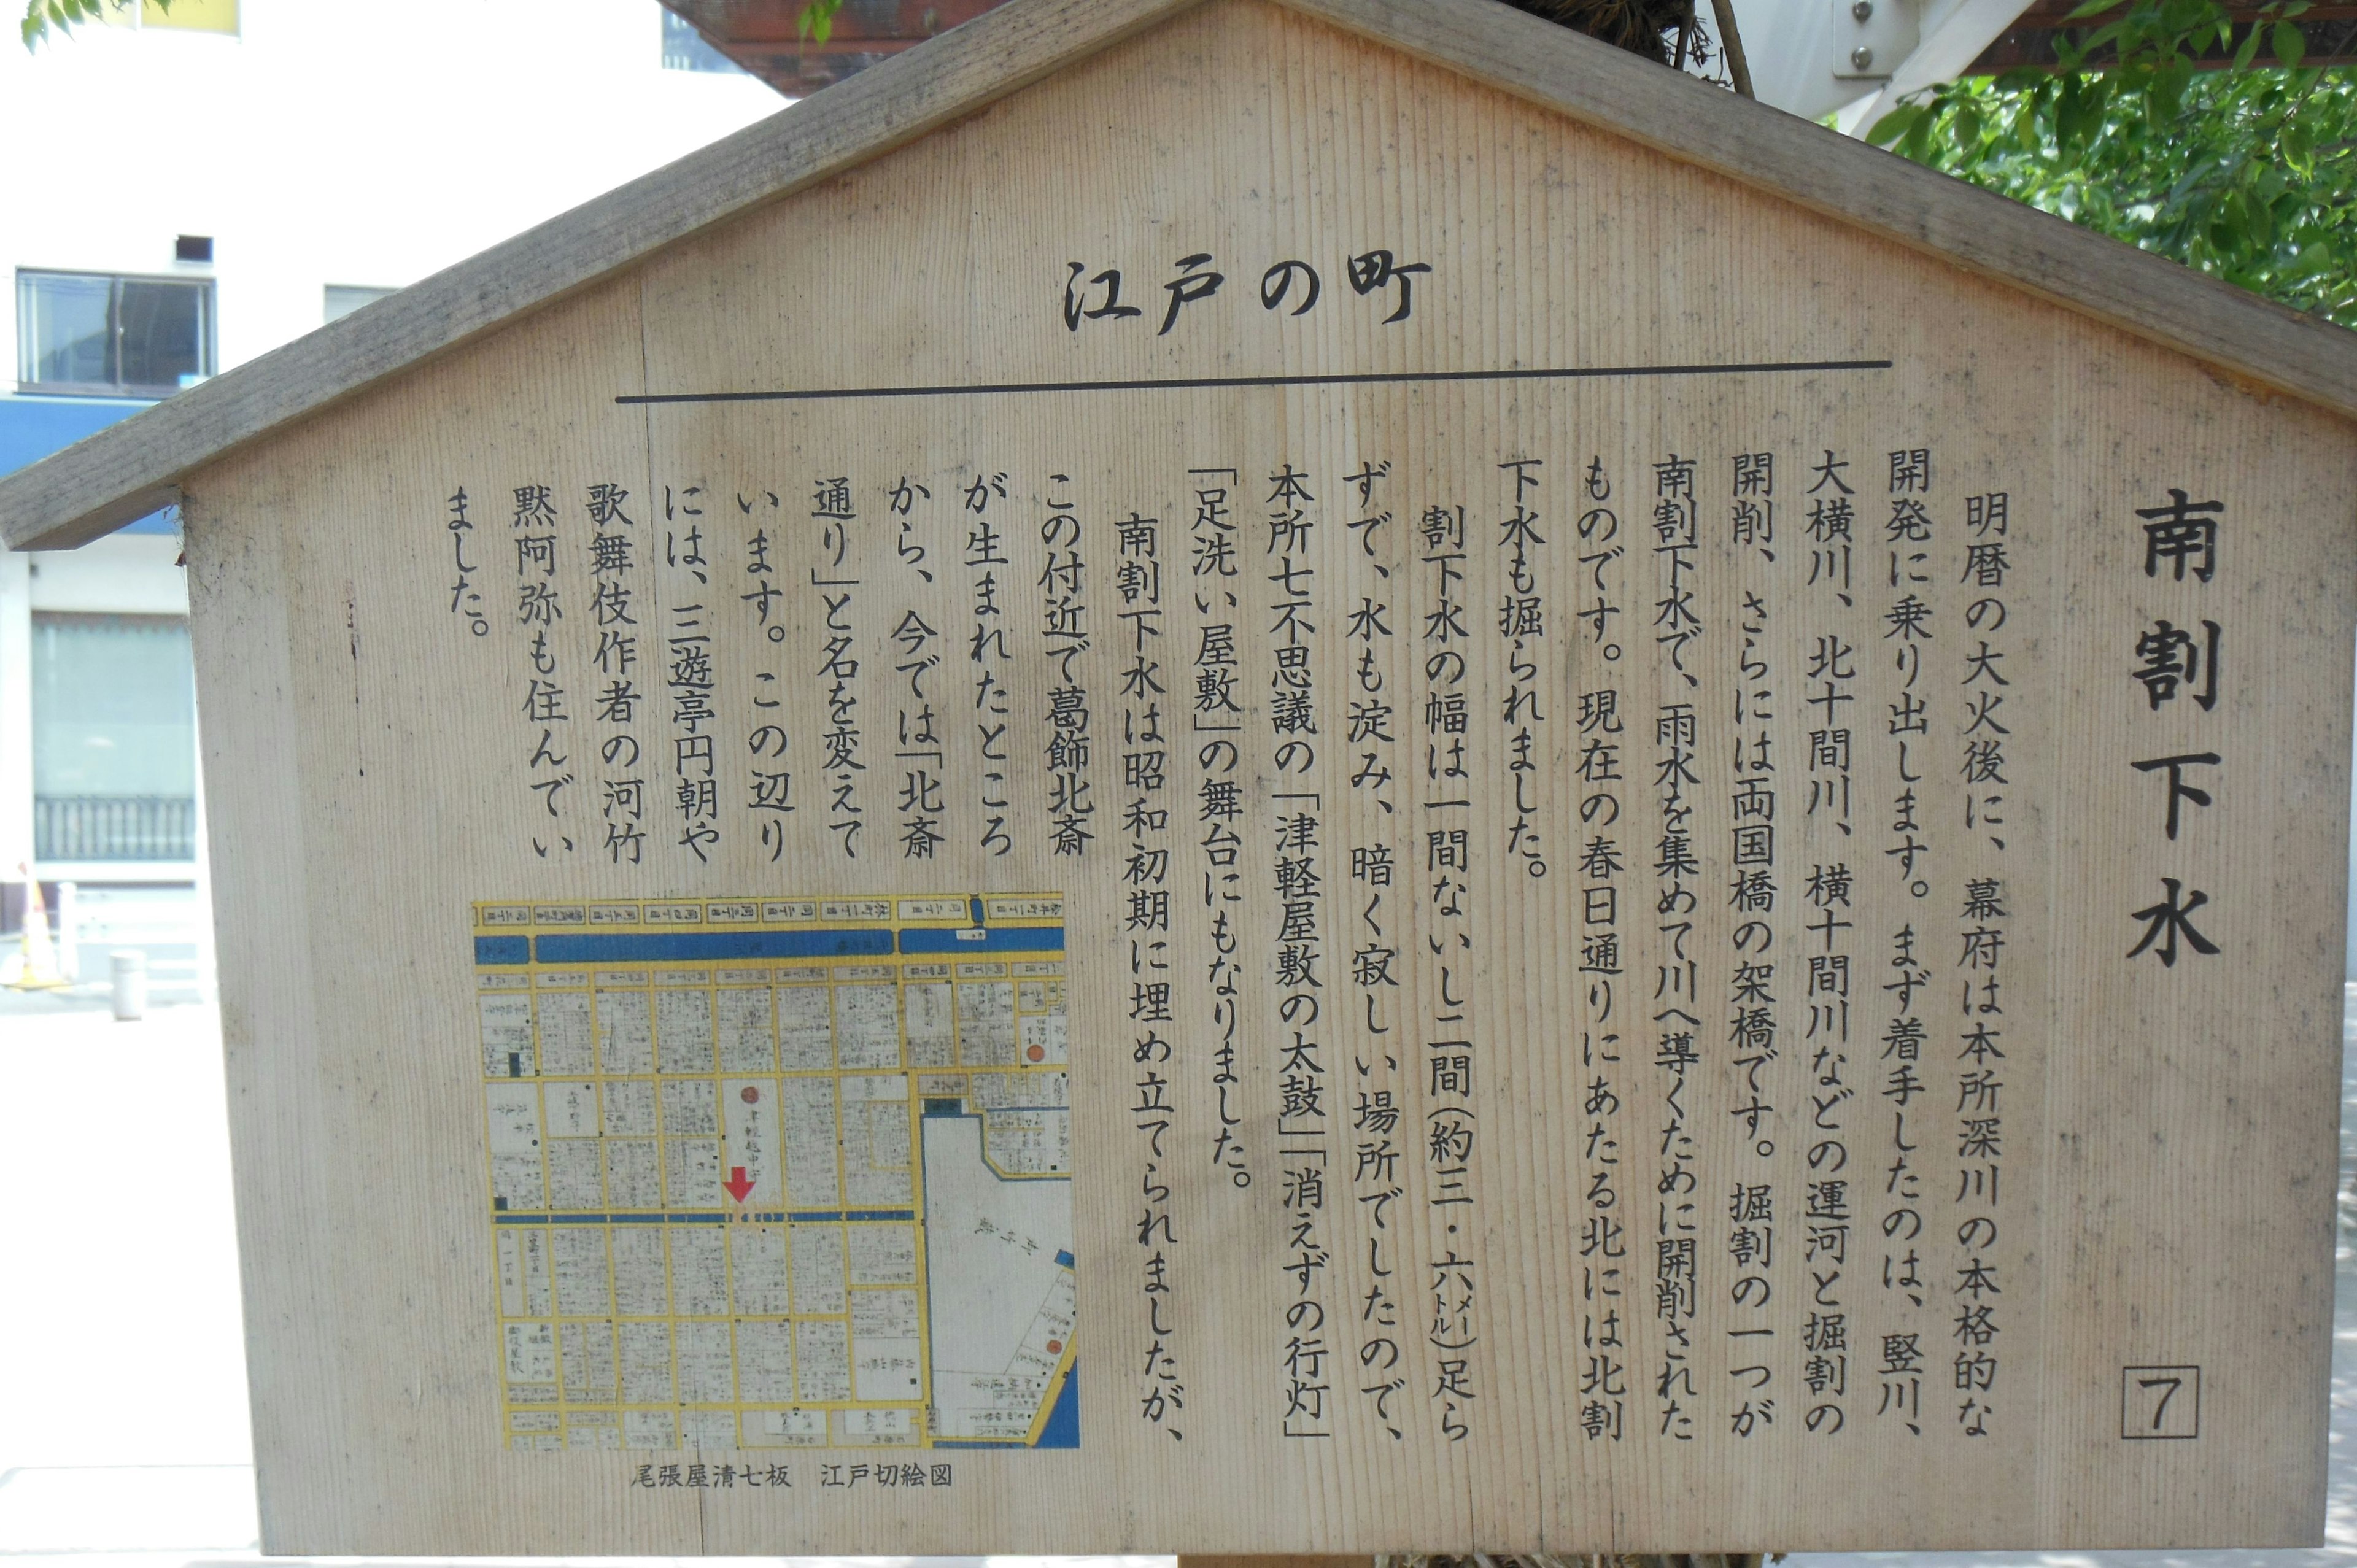 江戸の町
南割下水
7
明暦の大火後に、幕府は本所深川の本格的な
開発に乗り出します。まず着手したのは、竪川、
大横川、北十間川、横十間川などの運河と掘割の
開削、さらには両国橋の架橋です。掘割の一つが
南割下水で、雨水を集めて川へ導くために開削された
ものです。現在の春日通りにあたる北には北割
下水も掘られました。
割下水の幅は一間ないし二間(約三・六メートル)足ら
ずで、水も淀み、暗く寂しい場所でしたので、
本所七不思議の「津軽屋敷の太鼓」「消えずの行灯」
「足洗い屋敷」の舞台にもなりました。
南割下水は昭和初期に埋め立てられましたが、
この付近で葛飾北斎
が生まれたところ
から、今では「北斎
通り」と名を変えて
います。この辺り
には、三遊亭円朝や
歌舞伎作者の河竹
黙阿弥も住んでい
ました。
尾張屋清七板 江戸切絵図